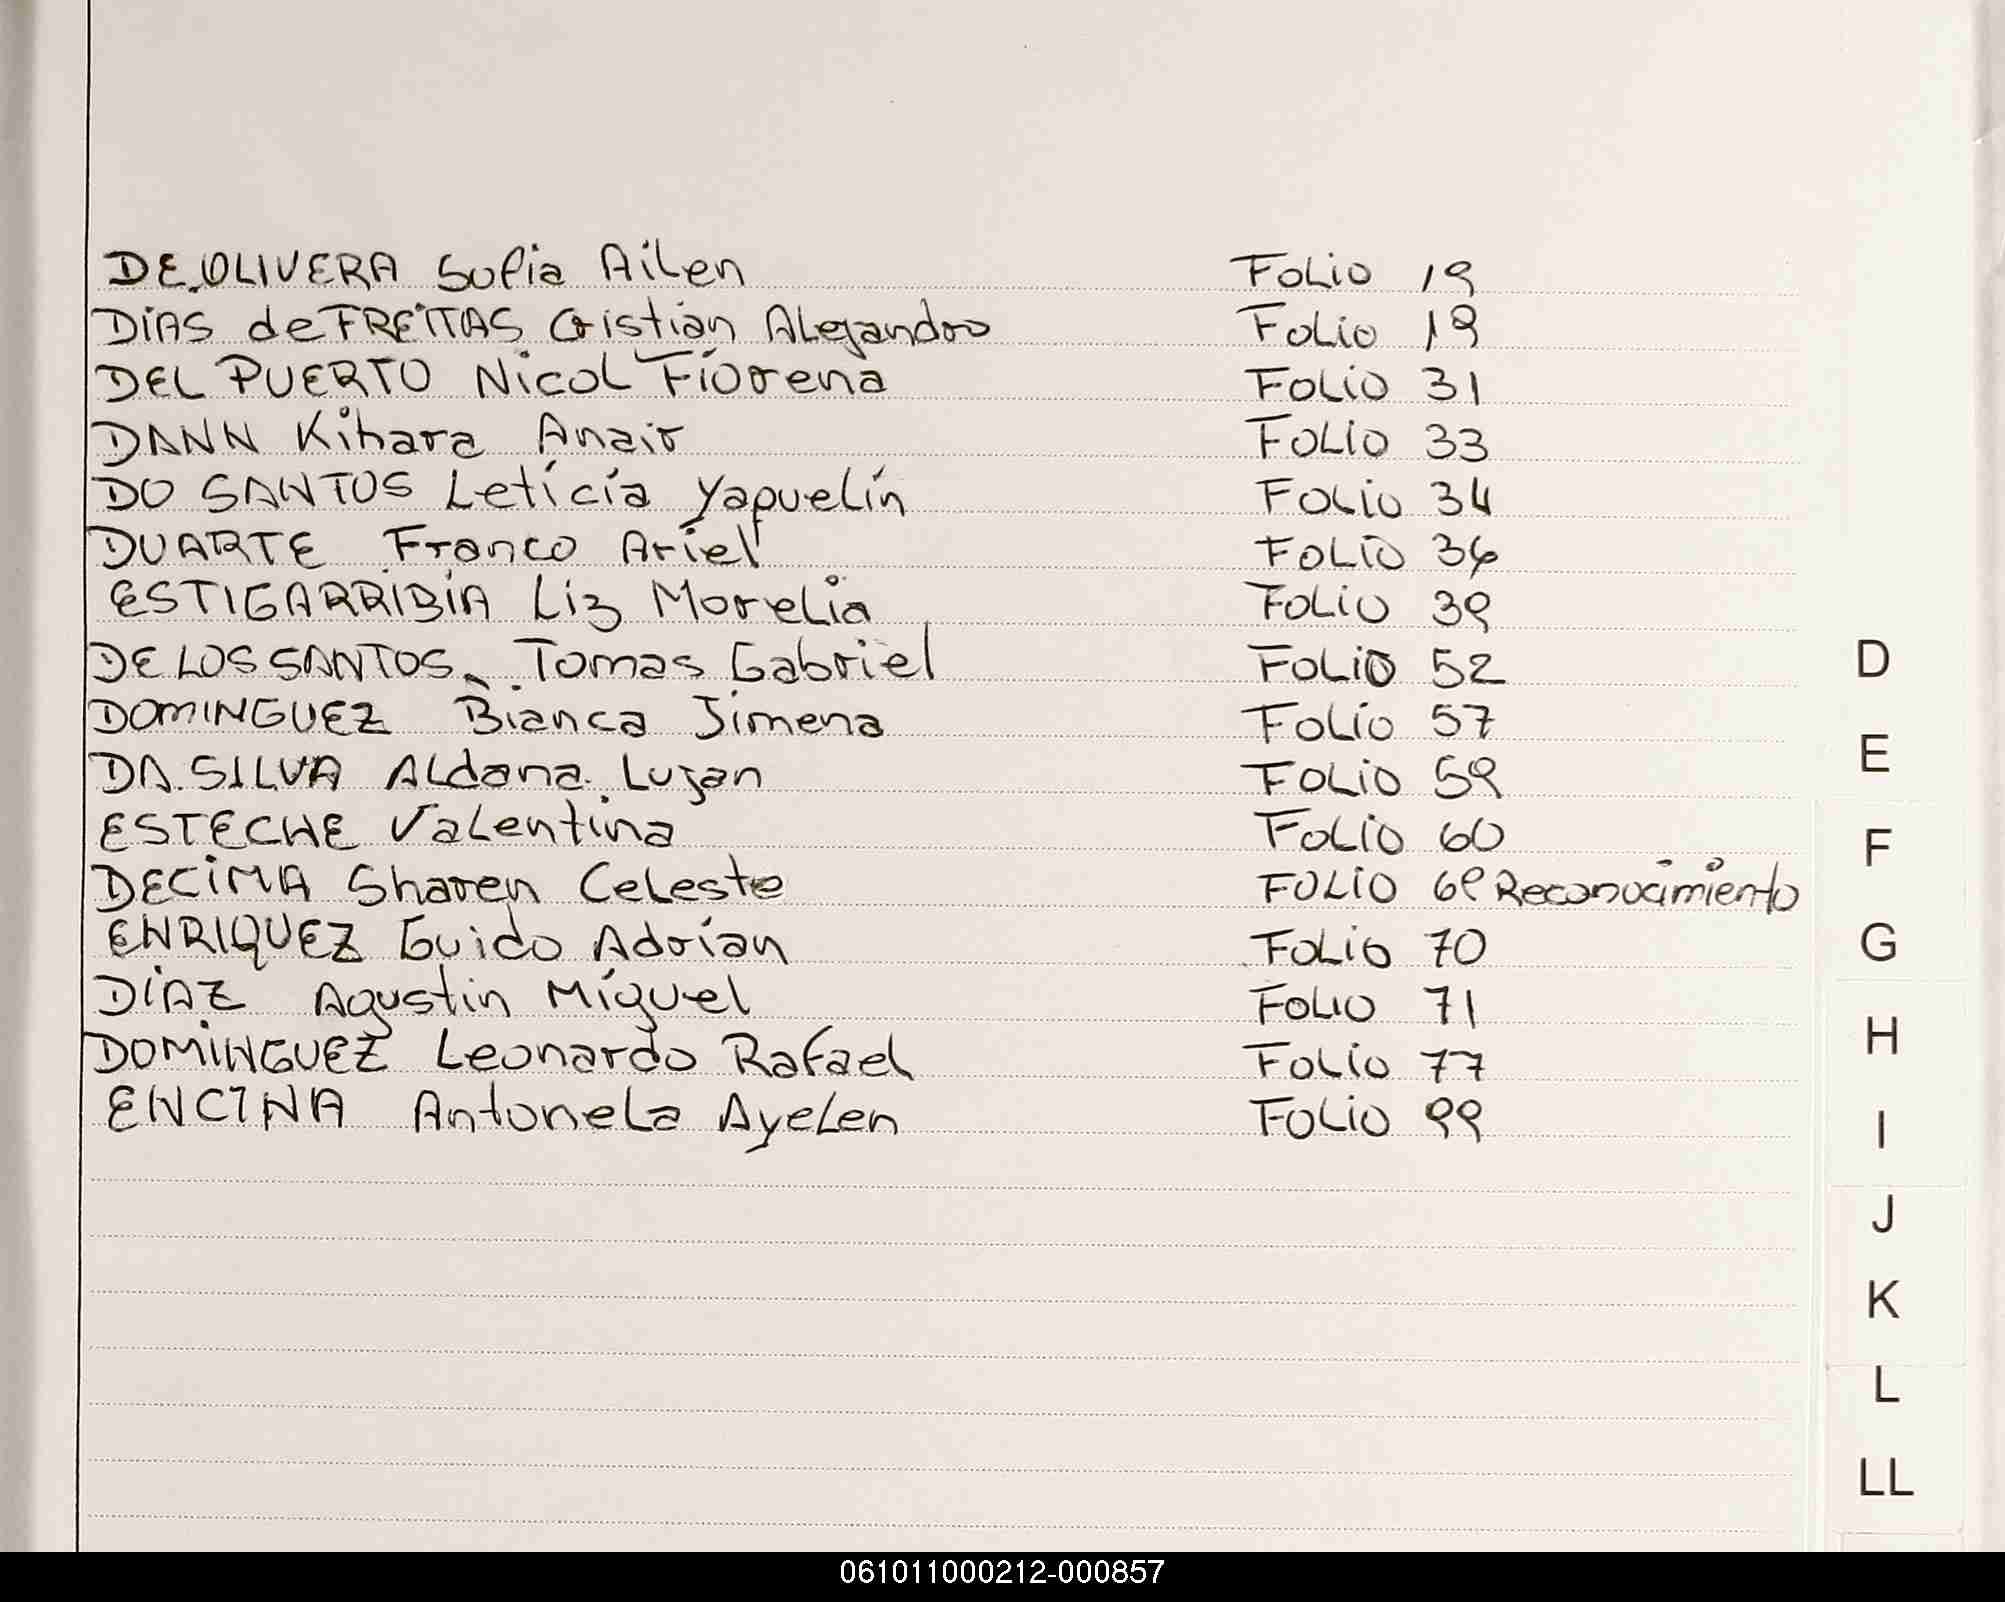 DE OLIVERA Sofia Ailen Folio 19
DIAS de FREITAS Cristian Alejandro Folio 19
DEL PUERTO Nicol Fiorena Folio 31
DANN Kihara Anair Folio 33
DO SANTOS Leticia Yaquelin Folio 34
DUARTE Franco Ariel Folio 36
ESTIGARRIBIA Liz Morelia Folio 39
DE LOS SANTOS Tomas Gabriel Folio 52
DOMINGUEZ Bianca Jimena Folio 57
DA SILVA Aldana Lujan Folio 59
ESTECHE Valentina Folio 60
DECIMA Sharen Celeste Folio 69 Reconocimiento
ENRIQUEZ Guido Adrian Folio 70
DIAZ Agustin Miguel Folio 71
DOMINGUEZ Leonardo Rafael Folio 77
ENCINA Antonela Ayelen Folio 99
D
E
F
G
H
I
J
K
L
LL
061011000212-000857